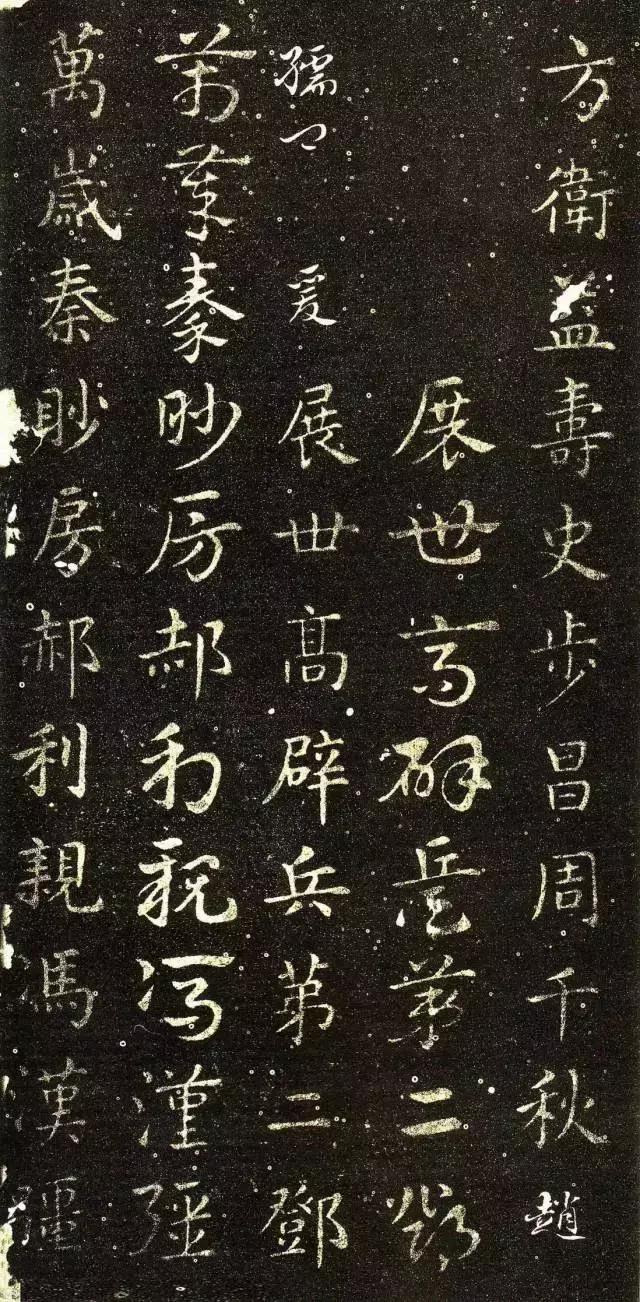 方衛益壽史步昌周千秋趙
展世高辟兵第二鄧
孺卿 爰展世高辟兵第二鄧
萬歲秦眇房郝利親馮漢彊
萬歲秦眇房郝利親馮漢疆